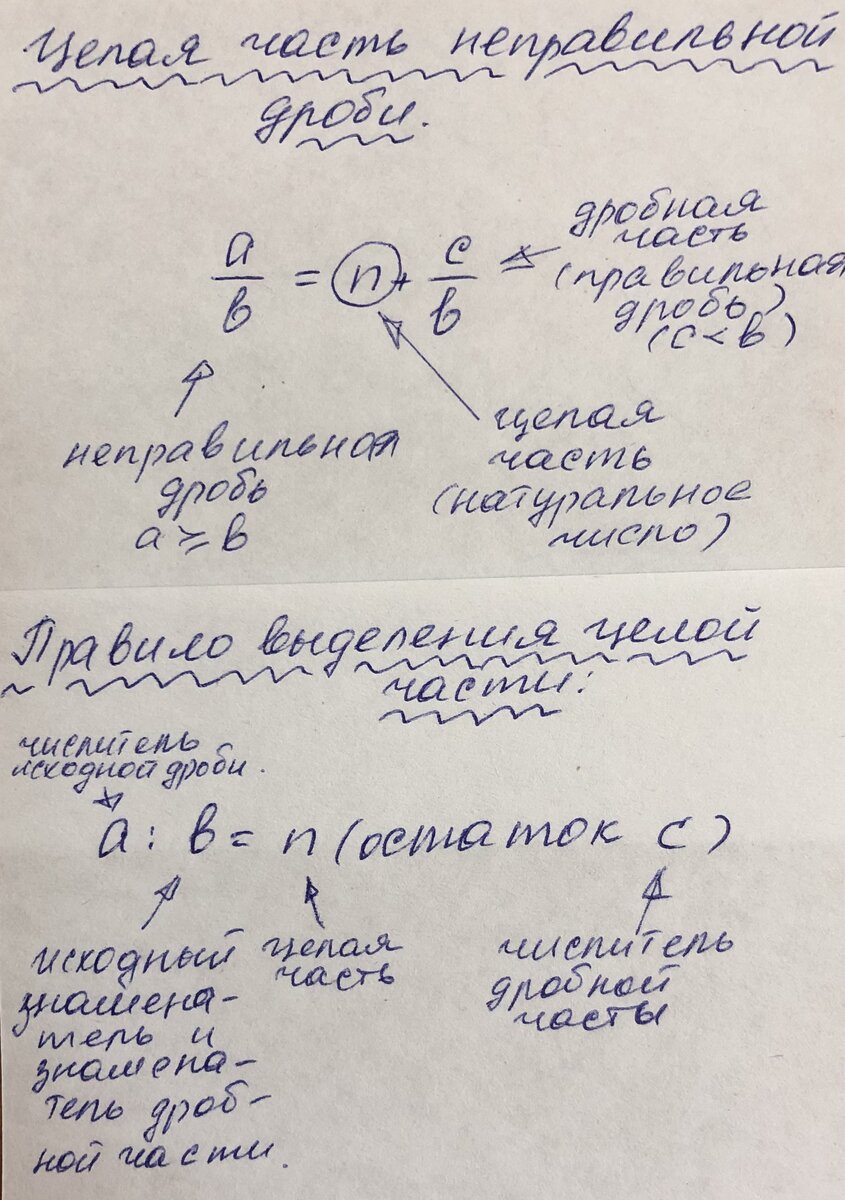 Целая часть неправильной
дроби.
a/в = n + c/в
дробная
часть
(правильная
дробь)
(c < в)
неправильная
дробь
a ⩾ в
целая
часть
(натуральное
число)
Правило выделения целой
части:
числитель
исходной дроби.
a : в = n (остаток c)
исходный
знамена-
тель и
знамена-
тель дроб-
ной части.
целая
часть
числитель
дробной
части